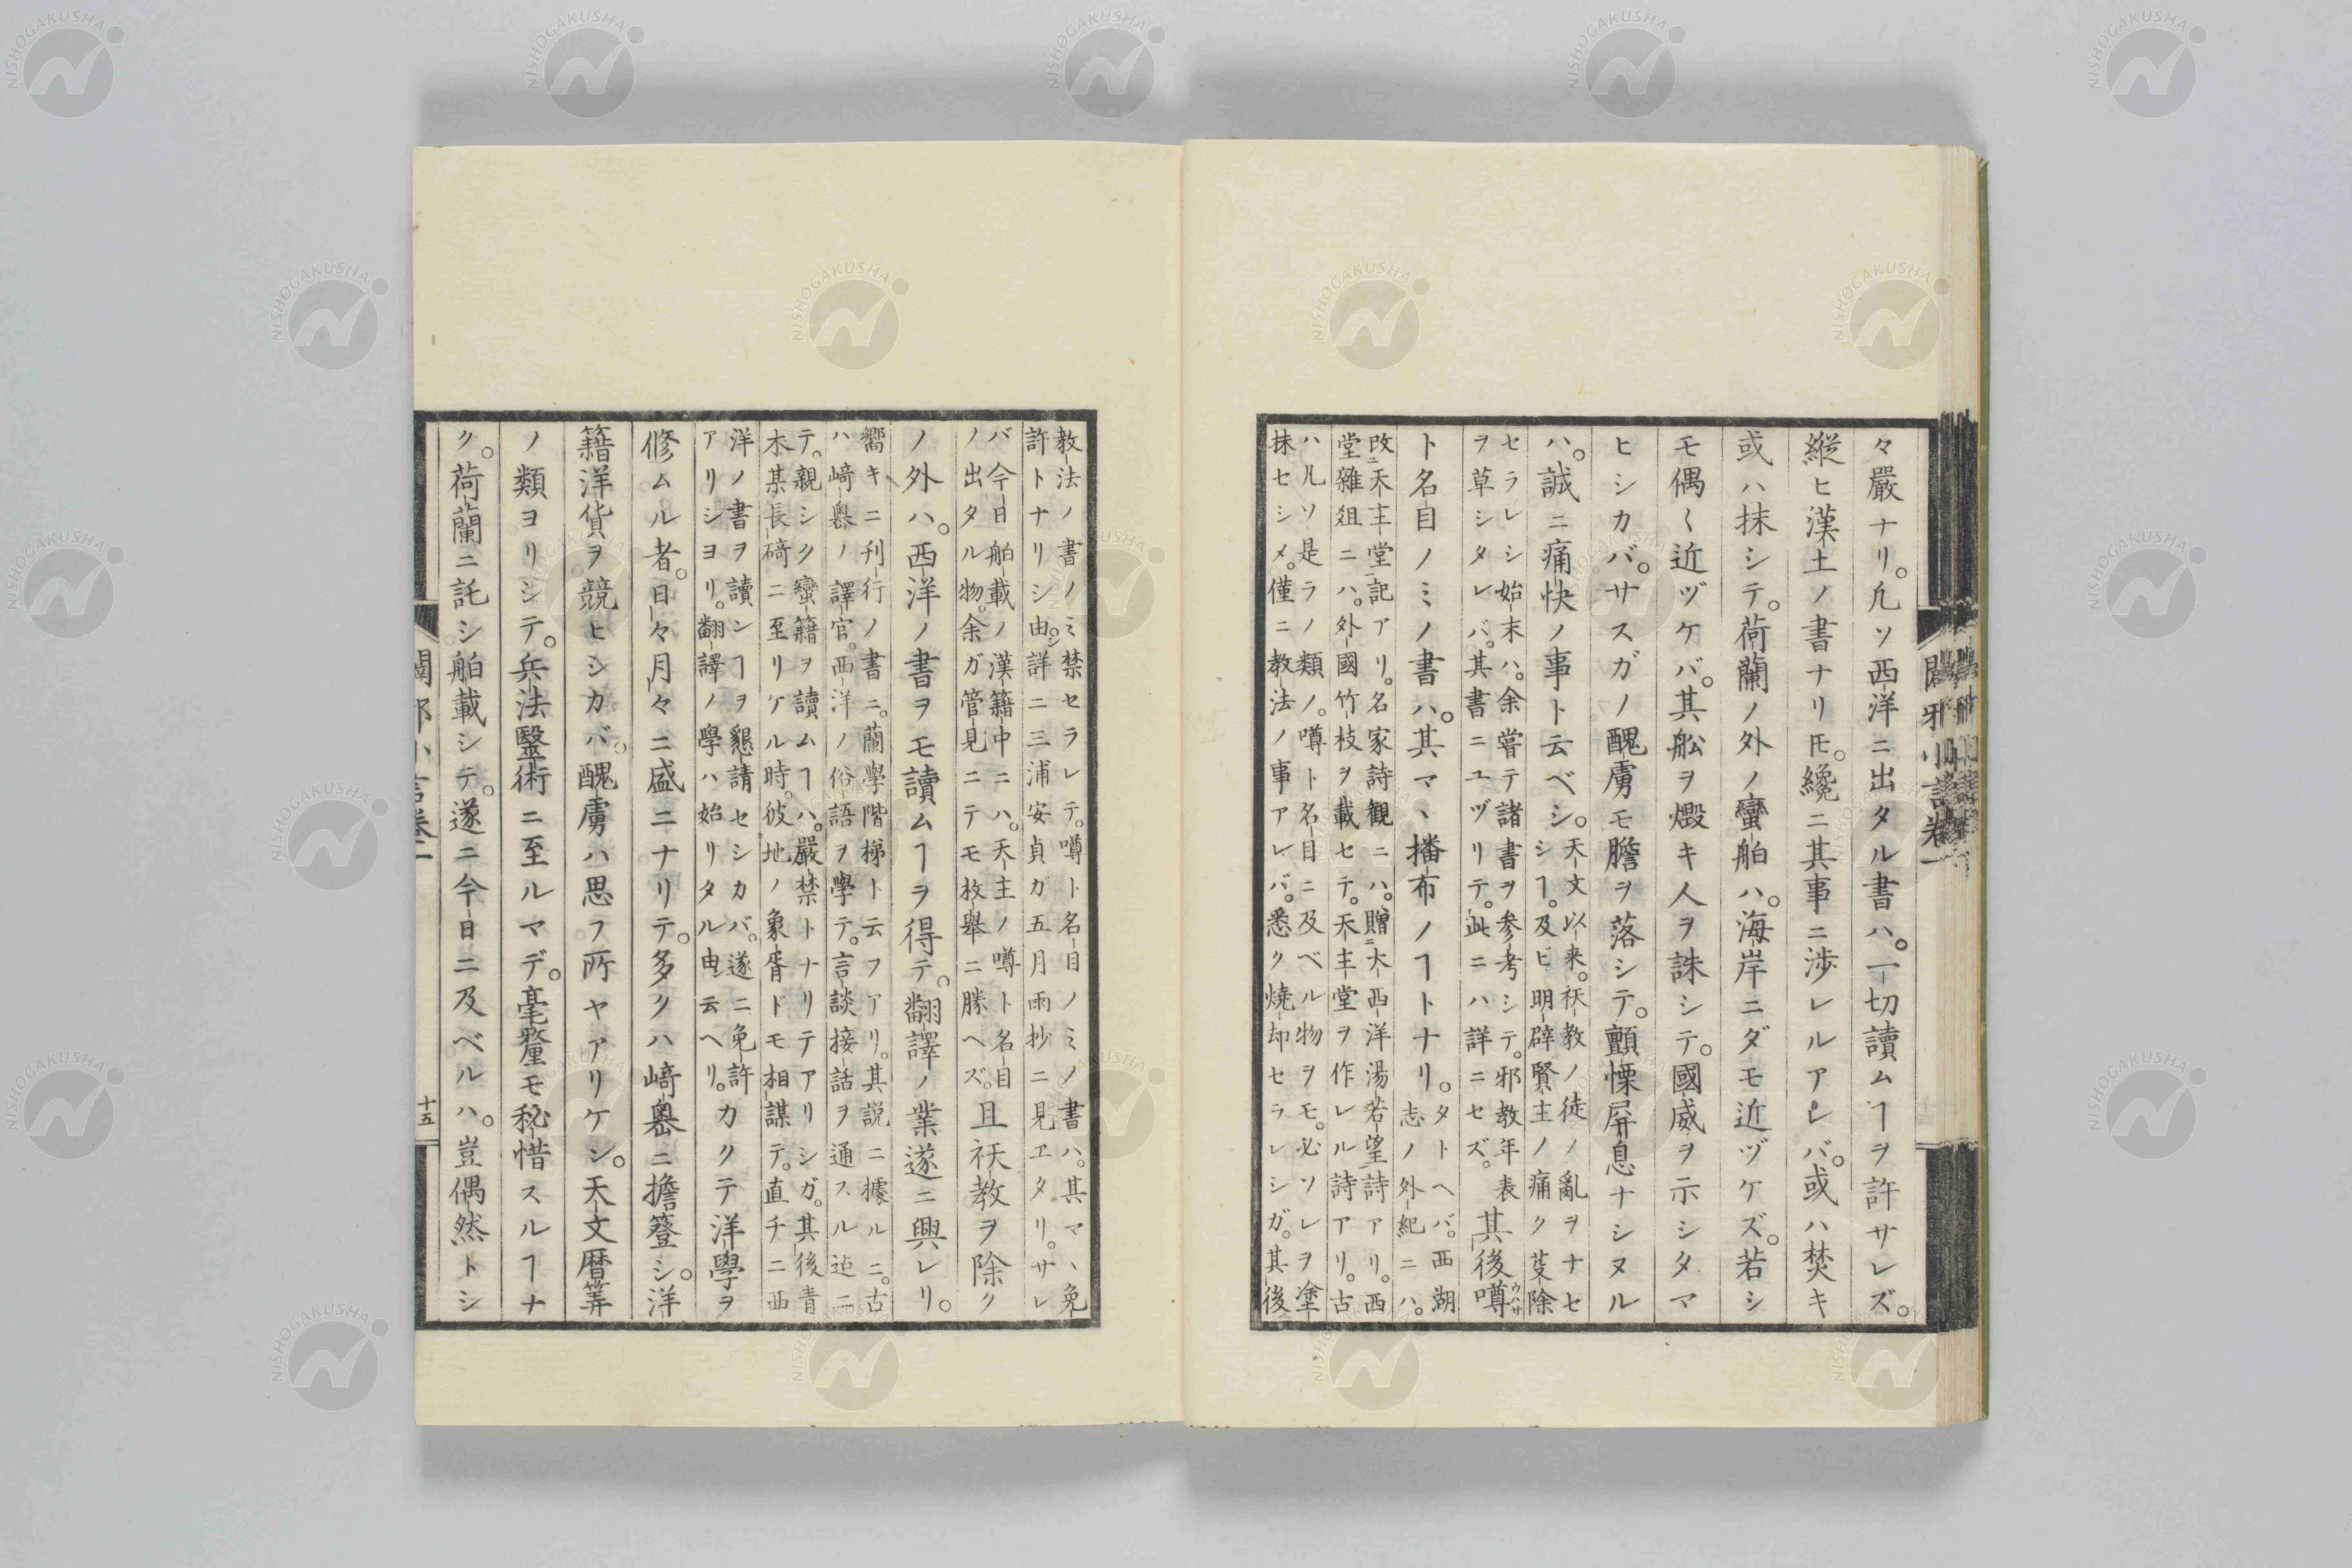 々嚴ナリ。凡ソ西洋ニ出タル書ハ。一切讀ムヿヲ許サレズ。
縱ヒ漢土ノ書ナリ𪜈。纔ニ其事ニ渉レルアレバ。或ハ焚キ
或ハ抹シテ。荷蘭ノ外ノ蠻舶ハ。海岸ニダモ近ヅケズ。若シ
モ偶〱近ヅケバ。其舩ヲ燬キ人ヲ誅シテ。國威ヲ示シタマ
ヒシカバ。サスガノ醜虜モ膽ヲ落シテ。顫慄屏息ナシヌル
ハ。誠ニ痛快ノ事ト云ベシ。
天文以來。祅教ノ徒ノ亂ヲナセ
シヿ。及ビ明辟賢主ノ痛ク芟除
セラレシ始末ハ。余嘗テ諸書ヲ参考シテ。邪教年表
ヲ草シタレバ。其書ニユヅリテ。此ニハ詳ニセズ。
其後噂
ウハサ
ト名目ノミノ書ハ。其マヽ播布ノヿトナリ。
タトヘバ。西湖
志ノ外紀ニハ。
改天主堂記アリ。名家詩觀ニハ。贈大西洋湯若望詩アリ。西
堂雜俎ニハ。外國竹枝ヲ載セテ。天主堂ヲ作レル詩アリ。古
ハ凡ソ是ラノ類ノ。噂ト名目ニ及ベル物ヲモ。必ソレヲ塗
抹セシメ。僅ニ教法ノ事アレバ。悉ク燒却セラレシガ。其後
闢邪小言卷一
教法ノ書ノミ禁セラレテ。噂ト名目ノミノ書ハ。其マヽ免
許トナリシ由シ。詳ニ三浦安貞ガ五月雨抄ニ見エタリ。サレ
バ今日舶載ノ漢籍中ニハ。天主ノ噂ト名目
ノ出タル物。余ガ管見ニテモ枚舉ニ勝ヘズ。
且祅教ヲ除ク
ノ外ハ。西洋ノ書ヲモ讀ムヿヲ得テ。翻譯ノ業遂ニ興レリ。
嚮キニ刊行ノ書ニ。蘭學階梯ト云フアリ。其説ニ據ルニ。古
ハ﨑嶴ノ譯官。西洋ノ俗語ヲ學テ。言談接話ヲ通スル迚ニ
テ。親シク蠻籍ヲ讀ムヿハ。嚴禁トナリテアリシガ。其後青
木某長﨑ニ至リケル時。彼地ノ象胥ドモ相謀テ。直チニ西
洋ノ書ヲ讀ンヿヲ懇請セシカバ。遂ニ免許
アリシヨリ。翻譯ノ學ハ始リタル由云ヘリ。
カクテ洋學ヲ
修ムル者。日々月々ニ盛ニナリテ。多クハ﨑嶴ニ擔簦シ。洋
籍洋貨ヲ競ヒシカバ。醜虜ハ思フ所ヤアリケン。天文暦筭
ノ類ヨリシテ。兵法毉術ニ至ルマデ。毫釐モ秘惜スルヿナ
ク。荷蘭ニ託シ舶載シテ。遂ニ今日ニ及ベルハ。豈偶然トシ
闢邪小言卷一
十五
NISHOGAKUSHA